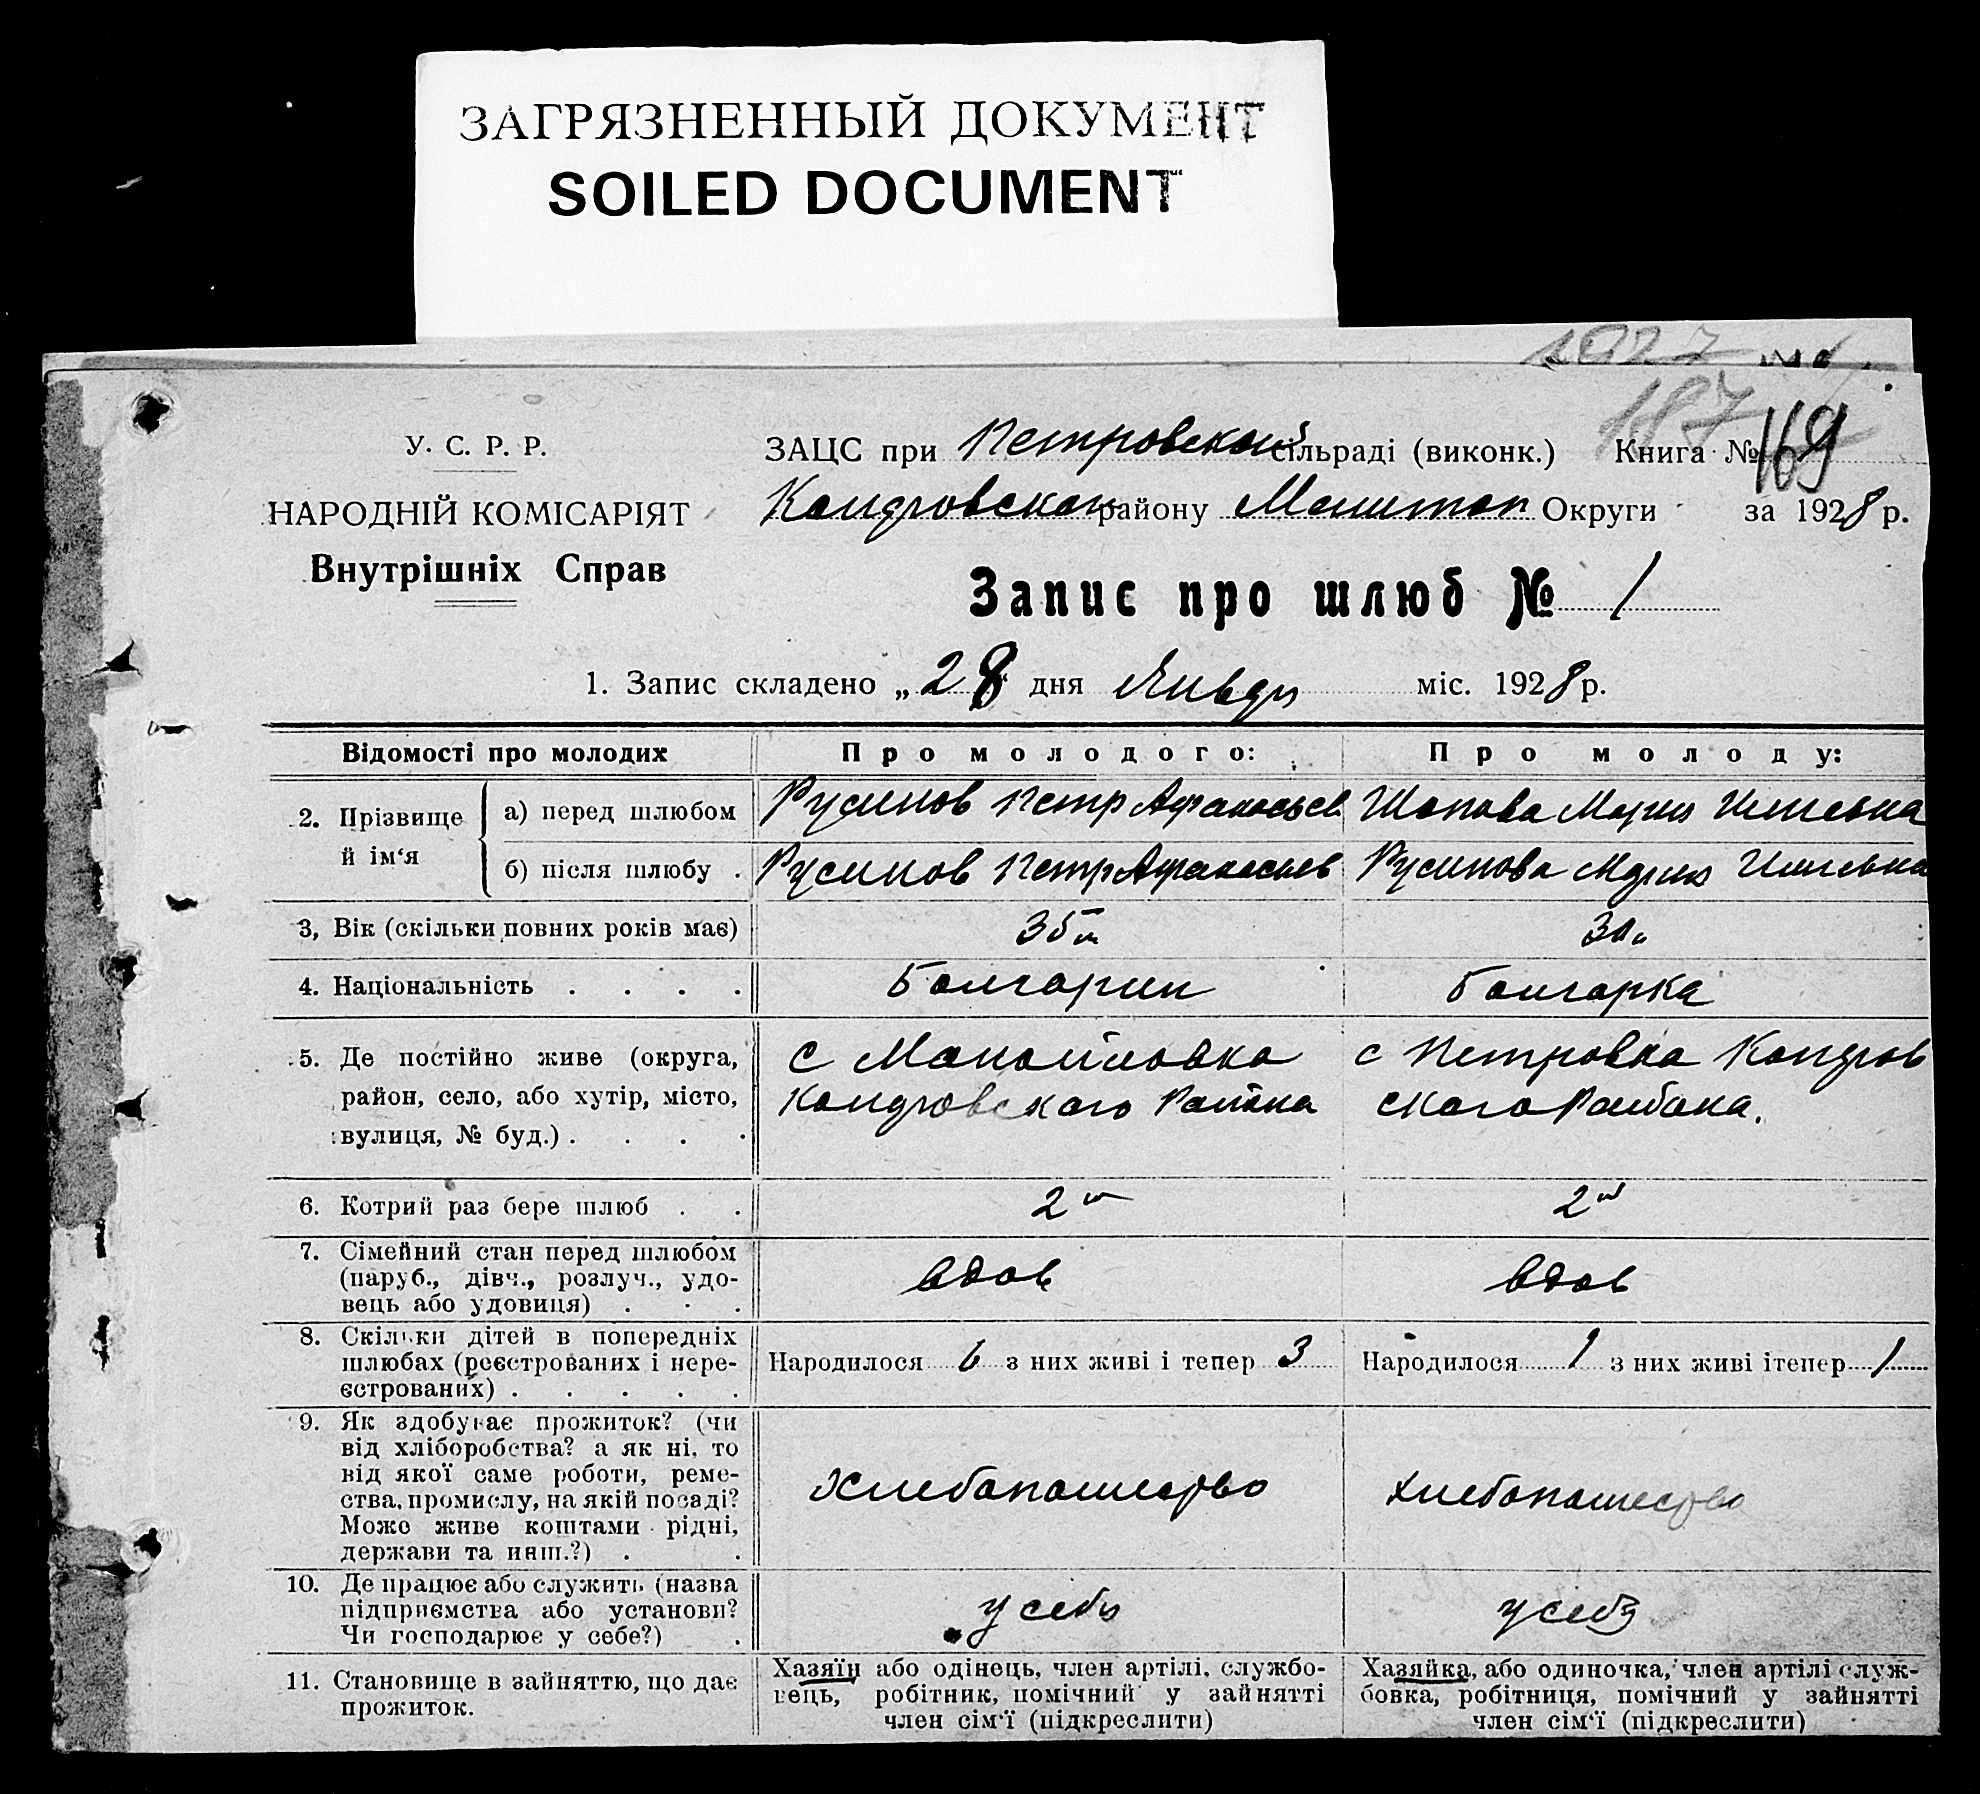 ЗАГРЯЗНЕННЫЙ ДОКУМЕНТ
SOILED DOCUMENT
1927
187
У. С. Р. Р.
НАРОДНІЙ КОМІСАРІЯТ
Внутрішніх Справ
ЗАЦС при Петровской сільраді (виконк.) Книга № 169
района округи за 1928 р.
Запис про шлюб № 1
1. Запис складено „28" дня Январ міс. 1928 р.
Відомості про молодих Про молодого: Про молоду:
2. Прізвище й ім‘я
а) перед шлюбом Русинов Петр Афанасьев Шопова Мария Ильевна
б) після шлюбу . Русинов Петр Афанасьев Русинова Мария Ильевна
3, Вік (скільки повних років має) 35 30
4. Національність . . . . Болгарин болгарка
5. Де постійно живе (округа,
район, село, або хутір, місто,
вулиця, № буд.) . . . .
с Манойловка
Кандровского Района
с Петровка Кандров
ского Района.
6. Котрий раз бере шлюб . . 2й 2й
7. Сімейний стан перед шлюбом
(паруб., дівч., розлуч., удо-
вець або удовиця) . . .
вдов вдов
8. Скільки дітей в попередніх
шлюбах (реєстрованих і нере-
єстрованих) . . . . .
Народилося 6 з них живі і тепер 3 Народилося 1 з них живі ітепер 1
9. Як здобуває прожиток? (чи
від хліборобства? а як ні, то
від якої саме роботи, реме-
ства, промислу, на якій посаді?
Може живе коштами рідні,
держави та инш.?) . .
Хлебопашество хлебопашество
10. Де працює або служить (назва
підприємства або установи?
Чи господарює у себе?) .
у себя у себя
11. Становище в зайняттю, що дає
прожиток.
Хазяїн або одінець, член артілі, службо-
вець, робітник, помічний у зайнятті
член сім‘ї (підкреслити)
Хазяйка, або одиночка, член артілі служ-
бовка, робітниця, помічний у зайнятті
член сім‘ї (підкреслити)